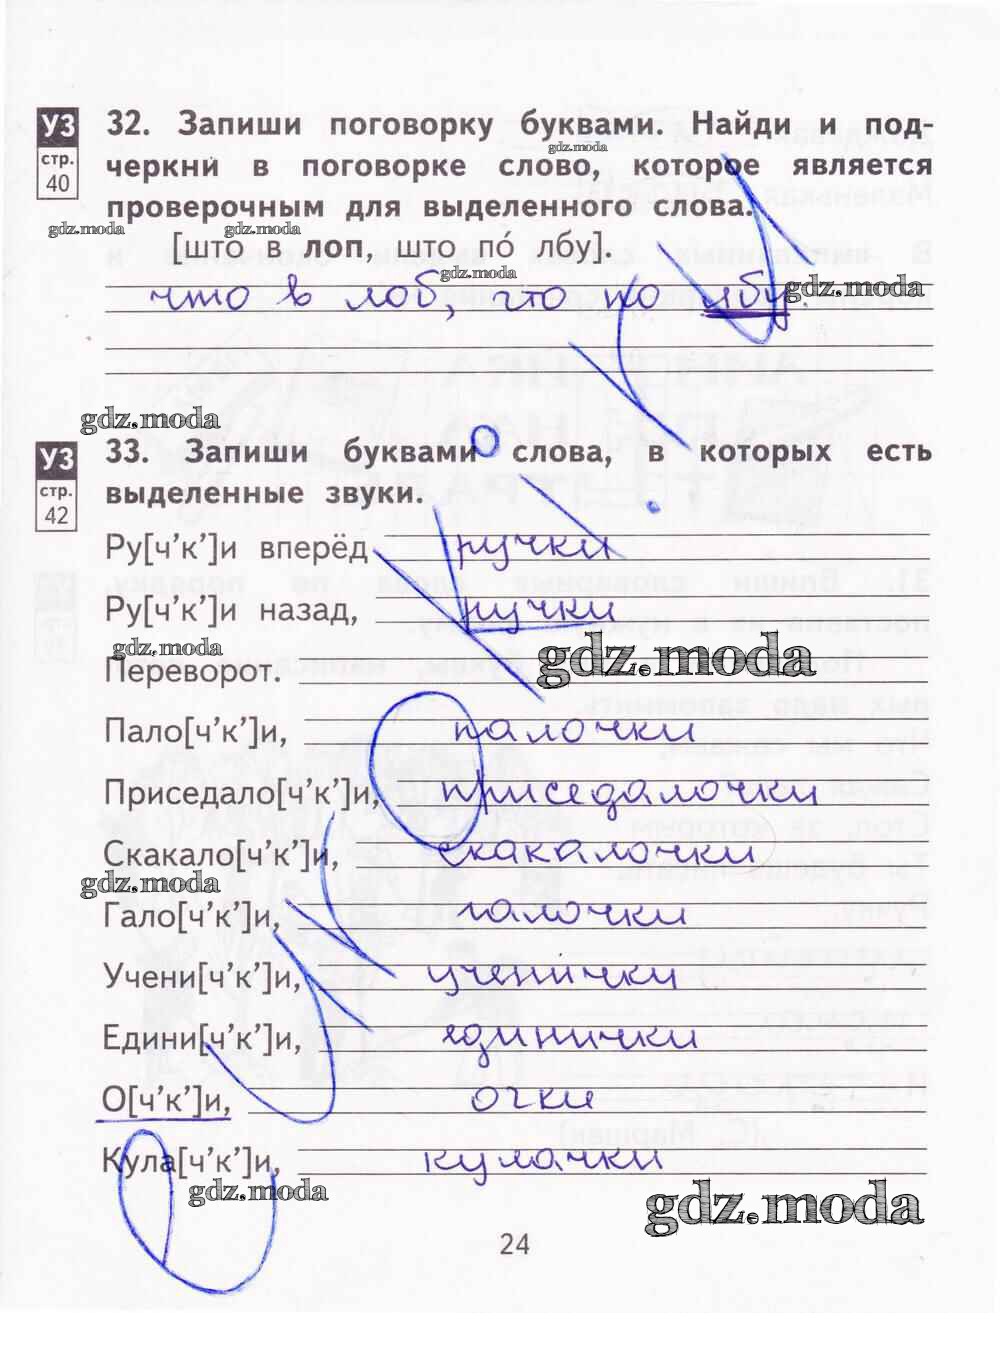 УЗ
стр.
40
32. Запиши поговорку буквами. Найди и под-
gdz.moda
черкни в поговорке слово, которое является
проверочным для выделенного слова.
gdz.moda
gdz.moda
[што в лоп, што по́ лбу].
gdz.moda
что в лоб, что по лбу.
gdz.moda
gdz.moda
УЗ
стр.
42
33. Запиши буквами слова, в которых есть
выделенные звуки.
Ру[ч’к’]и вперёд ручки
Ру[ч’к’]и назад, ручки
gdz.moda
gdz.moda
Переворот.
Пало[ч’к’]и, палочки
Приседало[ч’к’]и, приседалочки
Скакало[ч’к’]и, скакалочки
gdz.moda
Гало[ч’к’]и, галочки
Учени[ч’к’]и, ученички
Едини[ч’к’]и, единички
О[ч’к’]и, очки
Кула[ч’к’]и, кулачки
gdz.moda
gdz.moda
24